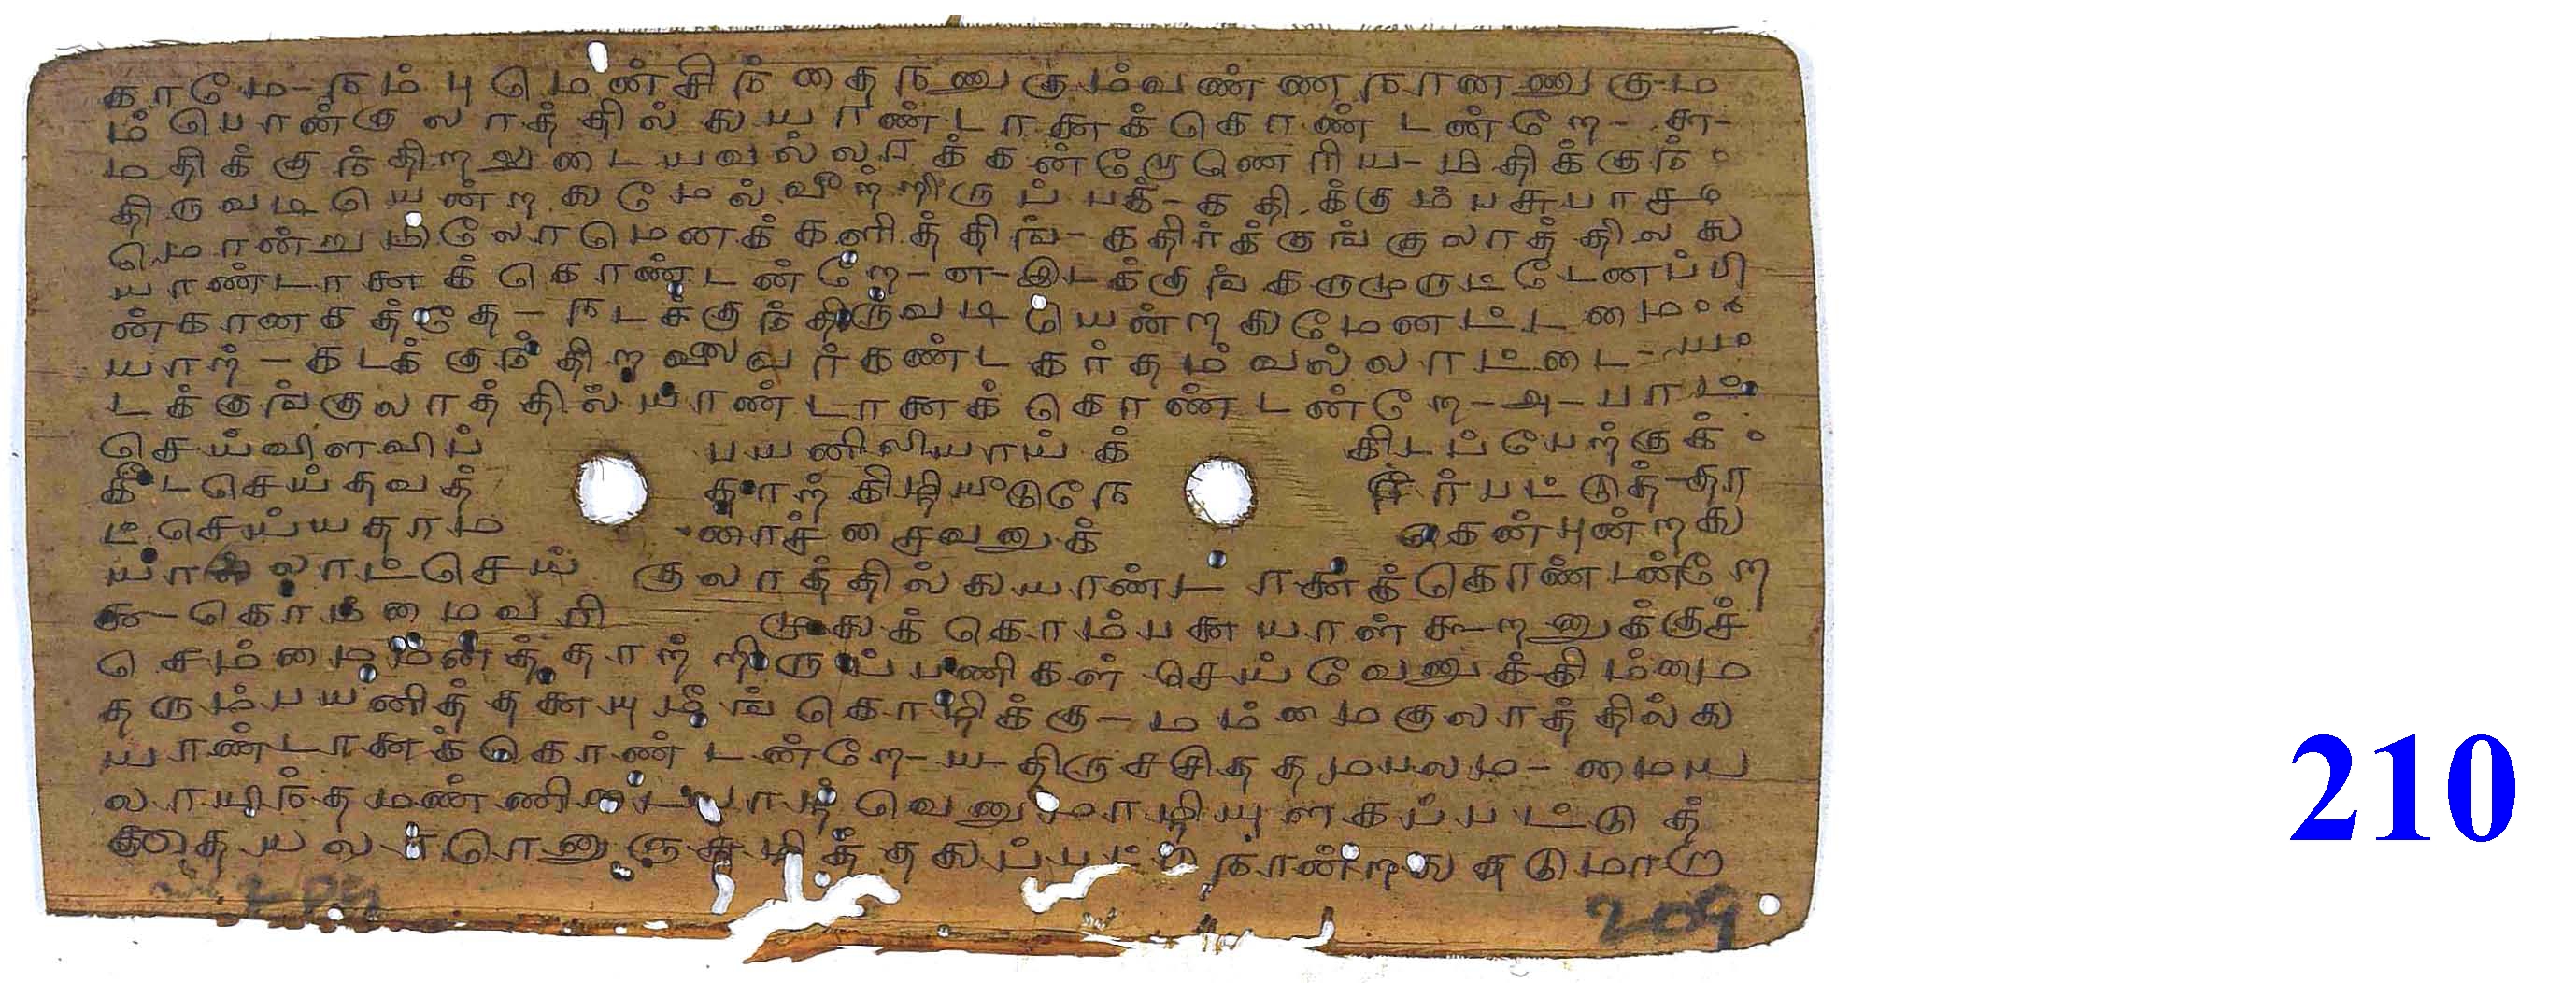 காமே-நம்புமென்சிந்தைநணுகும்வண்ணநானணுகும
ம்பொன்குலாத்தில்லையாண்டானைக்கொண்டன்றே-௬-
மதிக்குந்திறலுடையவல்லரக்கன்றோணெரிய-மிதிக்குந்
திருவடியென்றலைமேல்வீற்றிருப்பக்-கதிக்கும்பசுபாசம
மொன்றுமிலோமெனக்களித்திங்-கதிர்க்குங்குலாத்தில்லை
யாண்டானைக்கொண்டன்றே-எ-இடக்குங்கருமுருட்டேனப்பி
ன்கானகத்தே-நடக்குந்திருவடியென்றலைமேனட்டமை
யாற்-கடக்குந்திறலைவர்கண்டகர்தம்வல்லாட்டை-யட
டக்குங்குலாத்தில்யாண்டானைக்கொண்டன்றே-அ-பாழ்
செய்விளவிப் பயனிலியாய்க் கிடப்பேற்குக்
கீட்செய்தவத் தாற்கிழியீடுநே நேர்பட்டுத்-தா
ட்செய்யதாம ரைச்சைவனுக் கென்புன்றலை
யாலாட்செய் குலாத்தில்லையாண்டானைக்கொண்டன்றே
௯-கொம்மைவரி முலைக்கொம்பனையாள்கூறனுக்குச்
செம்மைமனத்தாற்றிருப்பணிகள்செய்வேனுக்கிம்மை
தரும்பயனித்தனையுமீங்கொழிக்கு-மம்மைகுலாத்தில்லை
யாண்டானைக்கொண்டன்றே-ய-திருச்சிததமபலம-மைய
லாயிந்தமண்ணிடைவாழ்வெனுமாழியுளகப்பட்டுத்
தையலாரெனுஞ்சுழித்தலைப்பட்டுநான்றலைதடுமாறு
209
210